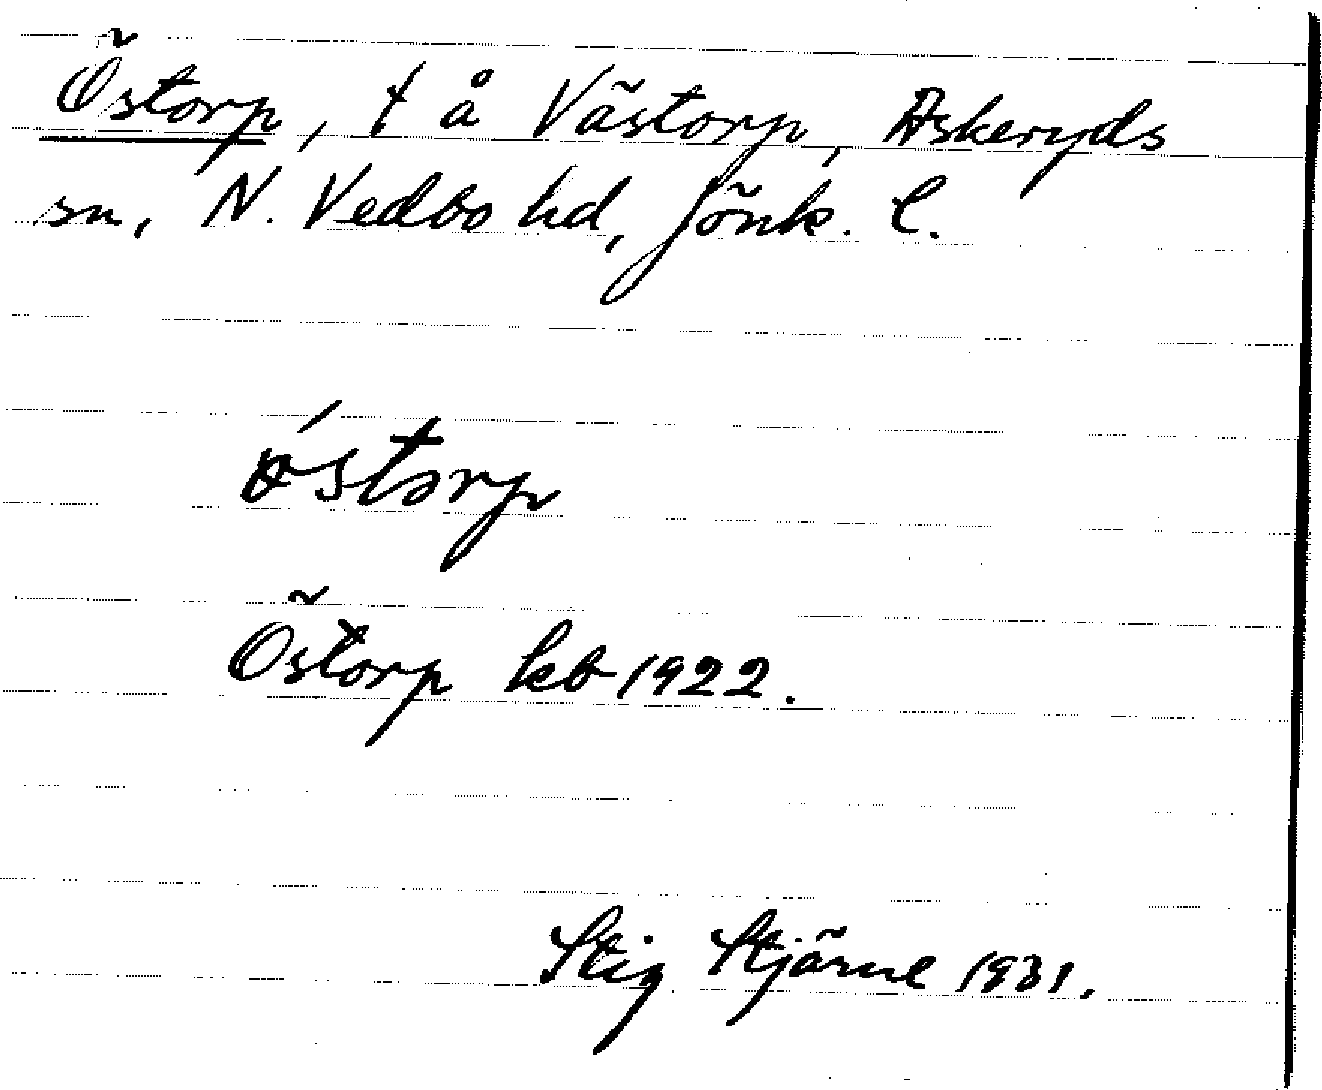 Östorp, t å Västorp, Askeryds
sn, N. Vedbo hd, Jönk. l.
östorp
Östorp kb 1922.
Stig Stjärne 1931.